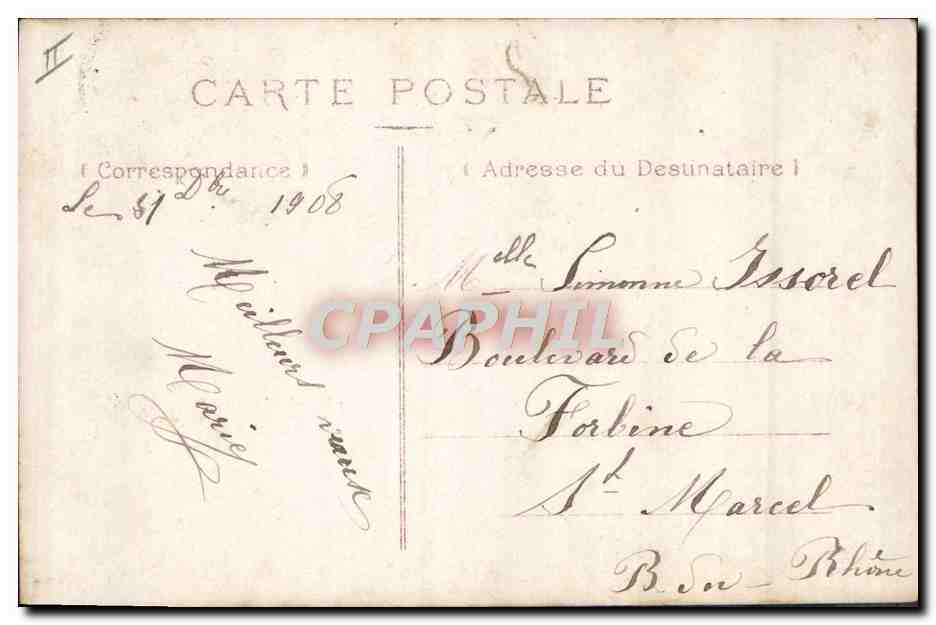 II
CARTE POSTALE
( Correspondance )
( Adresse du Destinataire )
Le 31 Dbre 1908
Meilleurs vœux
Marie
Melle Simonne Issorel
Boulevard de la
Forbine
St Marcel
B. du Rhône
CPAPHIL